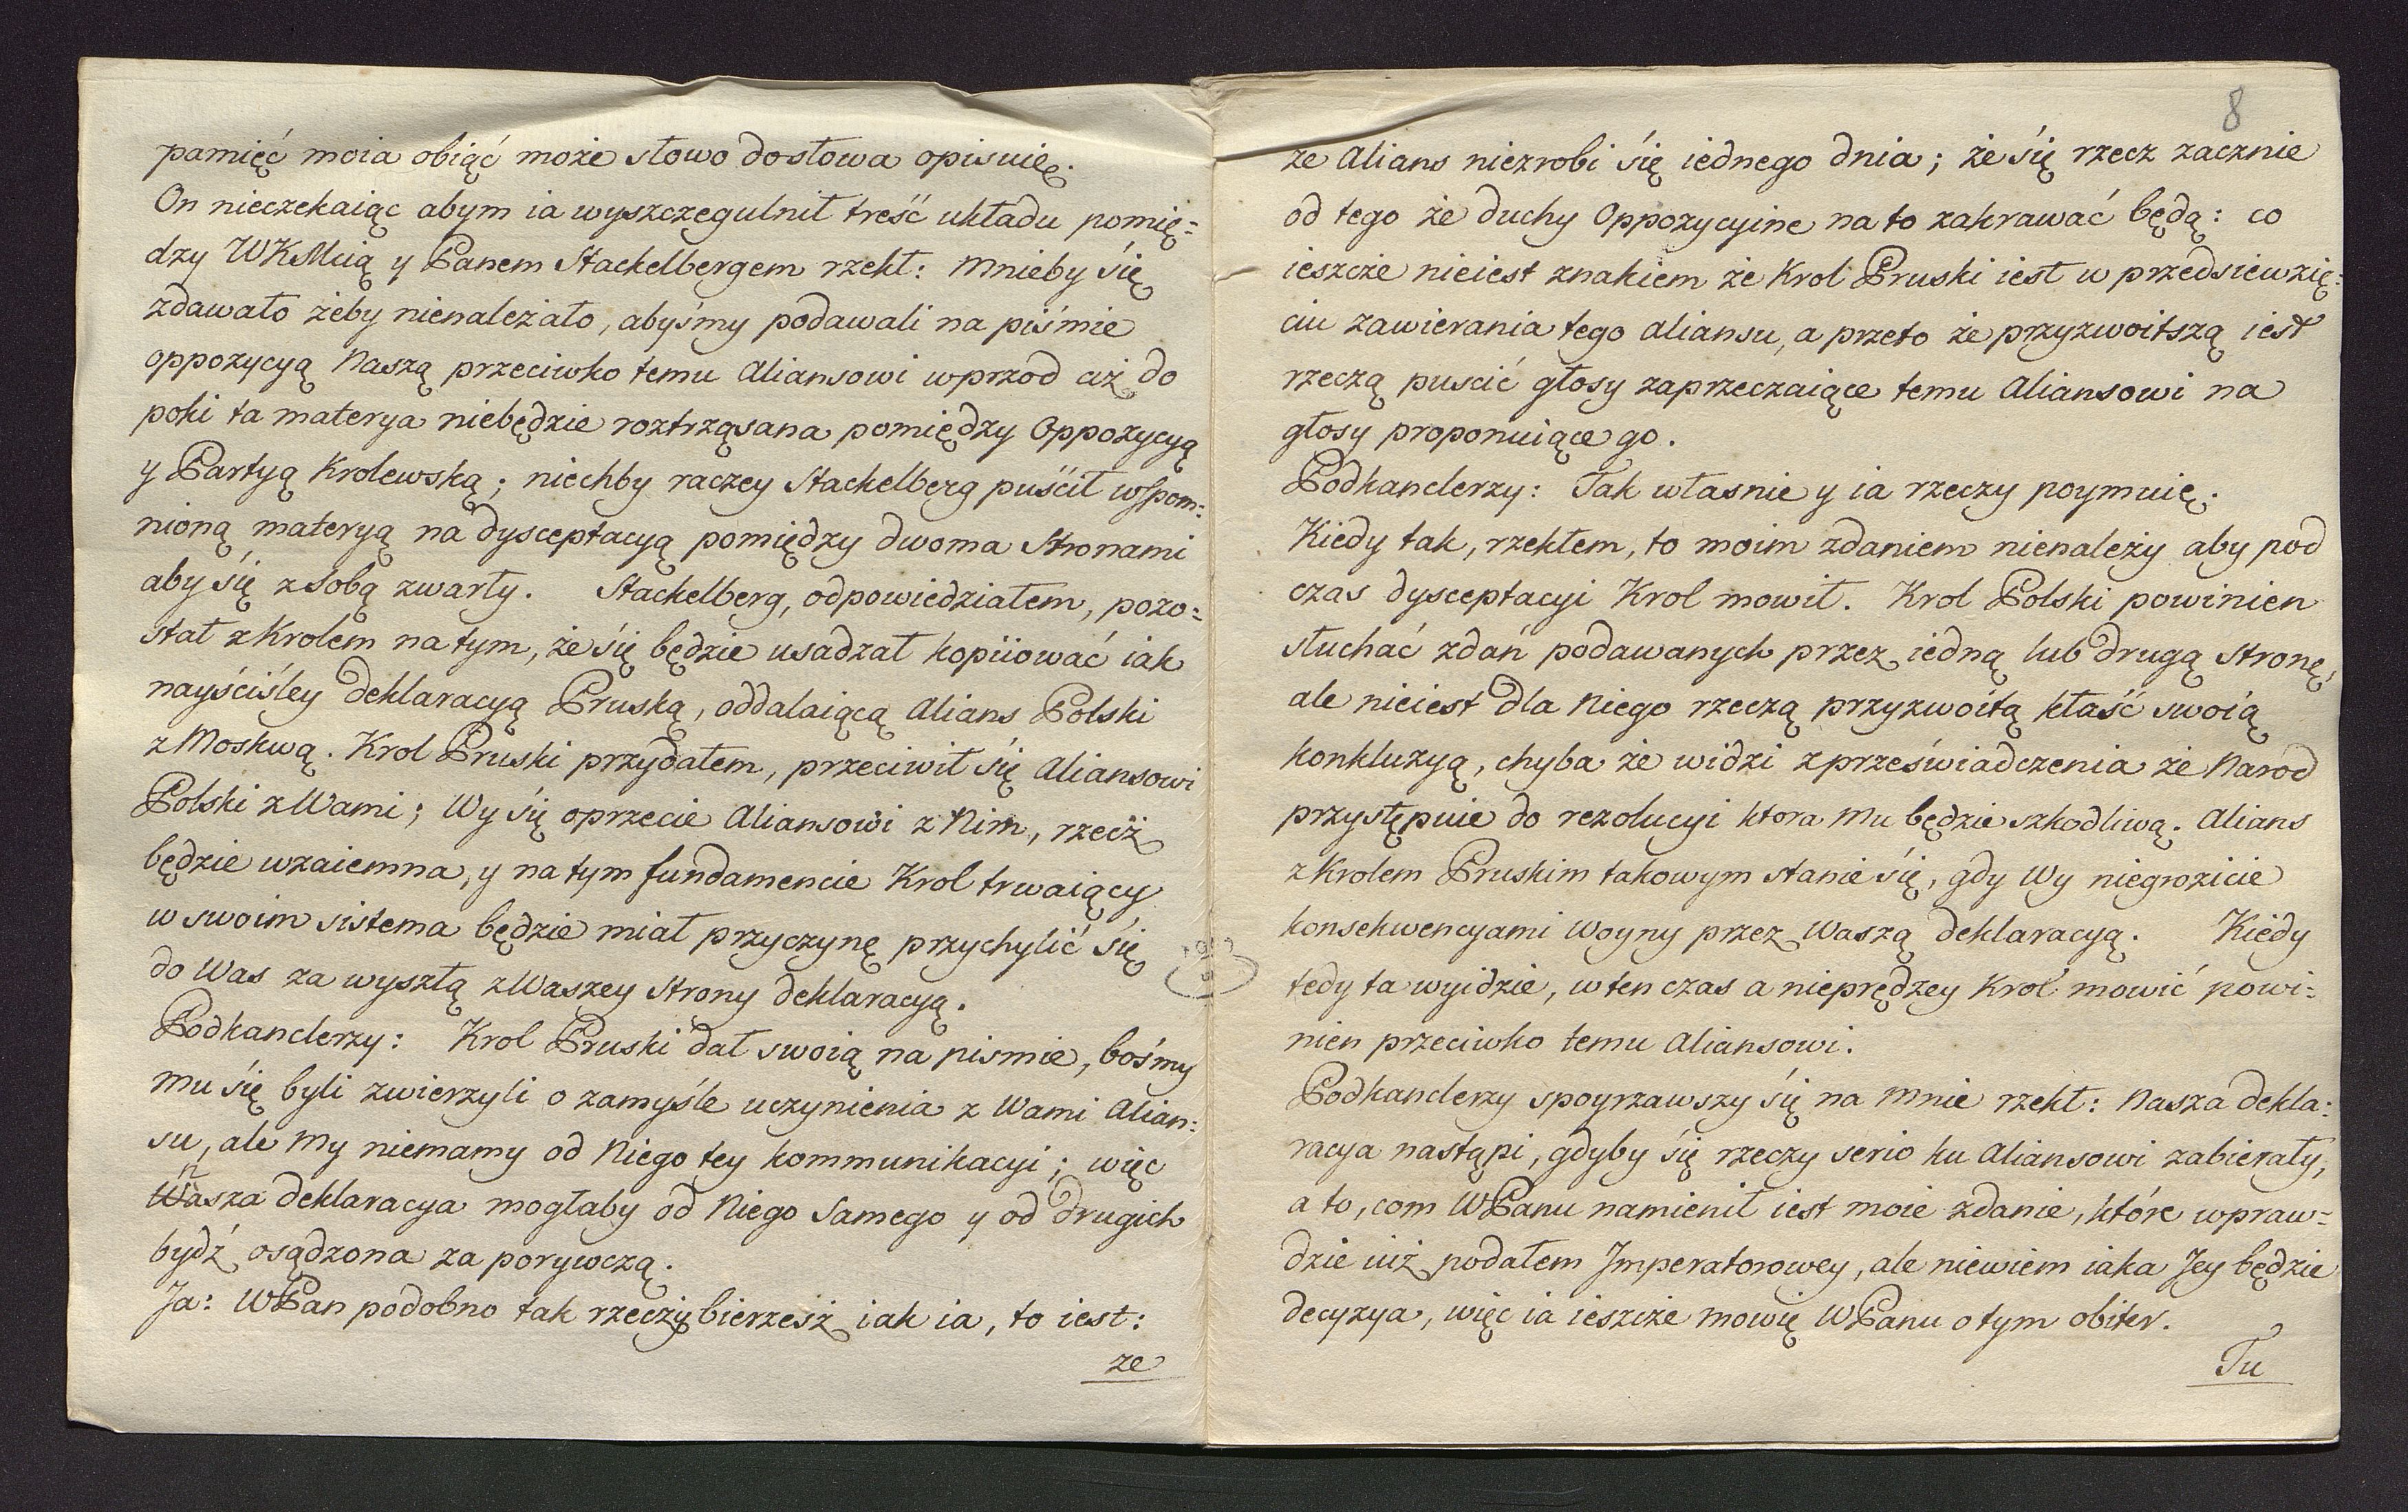 pamięć moia obiąć może słowo do słowa opisuię.
On nieczekaiąc abym ia wyszczegulnił treść układu pomię=
dzy WKMcią y Panem Stackelbergem rzekł: Mnieby się
zdawało żeby nienależało, abyśmy podawali na piśmie
oppozycyą Naszą przeciwko temu Aliansowi wprzod aż do
poki ta materya niebędzie roztrząsana pomiędzy Oppozycyą
y Partyą Krolewską; niechby raczey Stackelberg puścił wspom=
nioną materyą na dysceptacyą pomiędzy dwoma Stronami
aby się z sobą zwarły. Stackelberg, odpowiedziałem, pozo=
stał z Krolem na tym, że się będzie usadzał kopiiować iak
nayściśley deklaracyą Pruską, oddalaiącą Alians Polski
z Moskwą. Krol Pruski przydałem, przeciwił się Aliansowi
Polski z Wami; Wy się oprzecie Aliansowi z Nim, rzecz
będzie wzaiemna, y na tym fundamencie Krol trwaiący
w swoim sistema będzie miał przyczynę przychylić się
do Was za wyszłą z Waszey Strony deklaracyą.
Podkanclerzy: Krol Pruski dał swoią na pismie, bośmy
Mu się byli zwierzyli o zamyśle uczynienia z Wami Alian=
su, ale My niemamy od Niego tey kommunikacyi; więc
n
Wasza deklaracya mogłaby od Niego Samego y od drugich
bydź osądzona za porywczą.
Ja: WPan podobno tak rzeczy bierzesz iak ia, to iest:
ze
8
ze Alians niezrobi się iednego dnia; że się rzecz zacznie
od tego że duchy Oppozycyine na to zakrawać będą: co
ieszcze nieiest znakiem że Krol Pruski iest w przedsiewzię=
ciu zawierania tego Aliansu, a przeto że przyzwoitszą iest
rzeczą puscić głosy zaprzeczaiące temu Aliansowi na
głosy proponuiące go.
Podkanclerzy: Tak własnie y ia rzeczy poymuię.
Kiedy tak, rzekłem, to moim zdaniem nienależy aby pod
czas dysceptacyi Krol mowił. Krol Polski powinien
słuchać zdań podawanych przez iedną lub drugą Stronę,
ale nieiest dla Niego rzeczą przyzwoitą kłaść swoią
konkluzyą, chyba że widzi z przeświadczenia że Narod
przystępuie do rezolucyi ktora Mu będzie szkodliwą. Alians
z Krolem Pruskim takowym stanie się, gdy Wy niegrozicie
konsekwencyami Woyny przez Waszą deklaracyą. Kiedy
tedy ta wyidzie, w ten czas a nieprędzey Krol mowić powi=
nien przeciwko temu Aliansowi.
Podkanclerzy spoyrzawszy się na Mnie rzekł: Nasza dekla=
racya nastąpi, gdyby się rzeczy serio ku Aliansowi zabierały,
a to, com WPanu namienił iest moie zdanie, które wpraw=
dzie iuż podałem Imperatorowey, ale niewiem iaka Jey będzie
decyzya, więc ia ieszcze mowię WPanu o tym obiter.
Tu